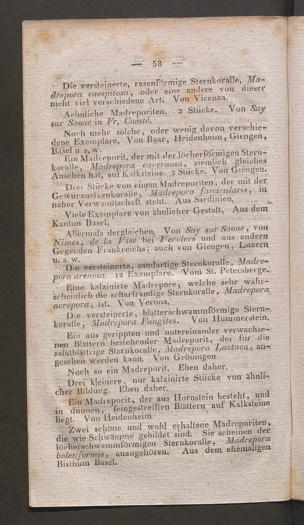 — 58 —
Die versteinerte, rasenförmige Sternkoralle, Ma-
drepora caespitosa, oder eine andere von dieser
nicht viel verschiedene Art. Von Vicenza.
Aehnliche Madreporiten. 2 Stücke. Von Say
sur Saone in Fr. Comté.
Noch mehr solche, oder wenig davon verschie-
dene Exemplare. Von Baar, Heidenheim, Giengen,
Basel u. s. w.
Ein Madreporit, der mit der löcherförmigen Stern-
koralle, Madrepora cavernosa, ziemlich gleiches
Ansehen hat, auf Kalksteine. 2 Stücke. Von Giengen.
Drei Stücke von einem Madreporiten, der mit der
Gewürznelkenkoralle, Madrepora fascicularis, in
naher Verwandtschaft steht. Aus Sardinien.
Viele Exemplare von ähnlicher Gestalt. Aus dem
Kanton Basel.
Abermals dergleichen. Von Say sur Saone, von
Nimes, de la Vise bei Verviers und aus andern
Gegenden Frankreichs; auch von Giengen, Luzern
u. s. w.
Die versteinerte, sandartige Sternkoralle, Madre-
pora arenosa. 12 Exemplare. Vom St. Petersberge.
Eine kalzinirte Madrepore, welche sehr wahr-
scheinlich die scharfrandige Sternkoralle, Madrepora
acropora, ist. Von Verona.
Die versteinerte, blätterschwammförmige Stern-
koralle, Madrepora Fungites. Von Hummernstein.
Ein aus gerippten und untereinander verwachse-
nen Blättern bestehender Madreporit, der für die
salatblättrige Sternkoralle, Madrepora Lactuca, an-
gesehen werden kann. Von Gröningen
Noch so ein Madreporit. Eben daher.
Drei kleinere, nur kalzinirte Stücke von ähnli-
cher Bildung. Eben daher.
Ein Madreporit, der aus Hornstein besteht, und
in dünnen, feingestreiften Blättern auf Kalksteine
liegt. Von Heidenheim
Zwei schöne und wohl erhaltene Madreporiten,
die wie Schwämme gebildet sind. Sie scheinen der
löcherschwammförmigen Sternkoralle, Madrepora
boletiformis, anzugehören. Aus dem ehemaligen
Bisthum Basel.